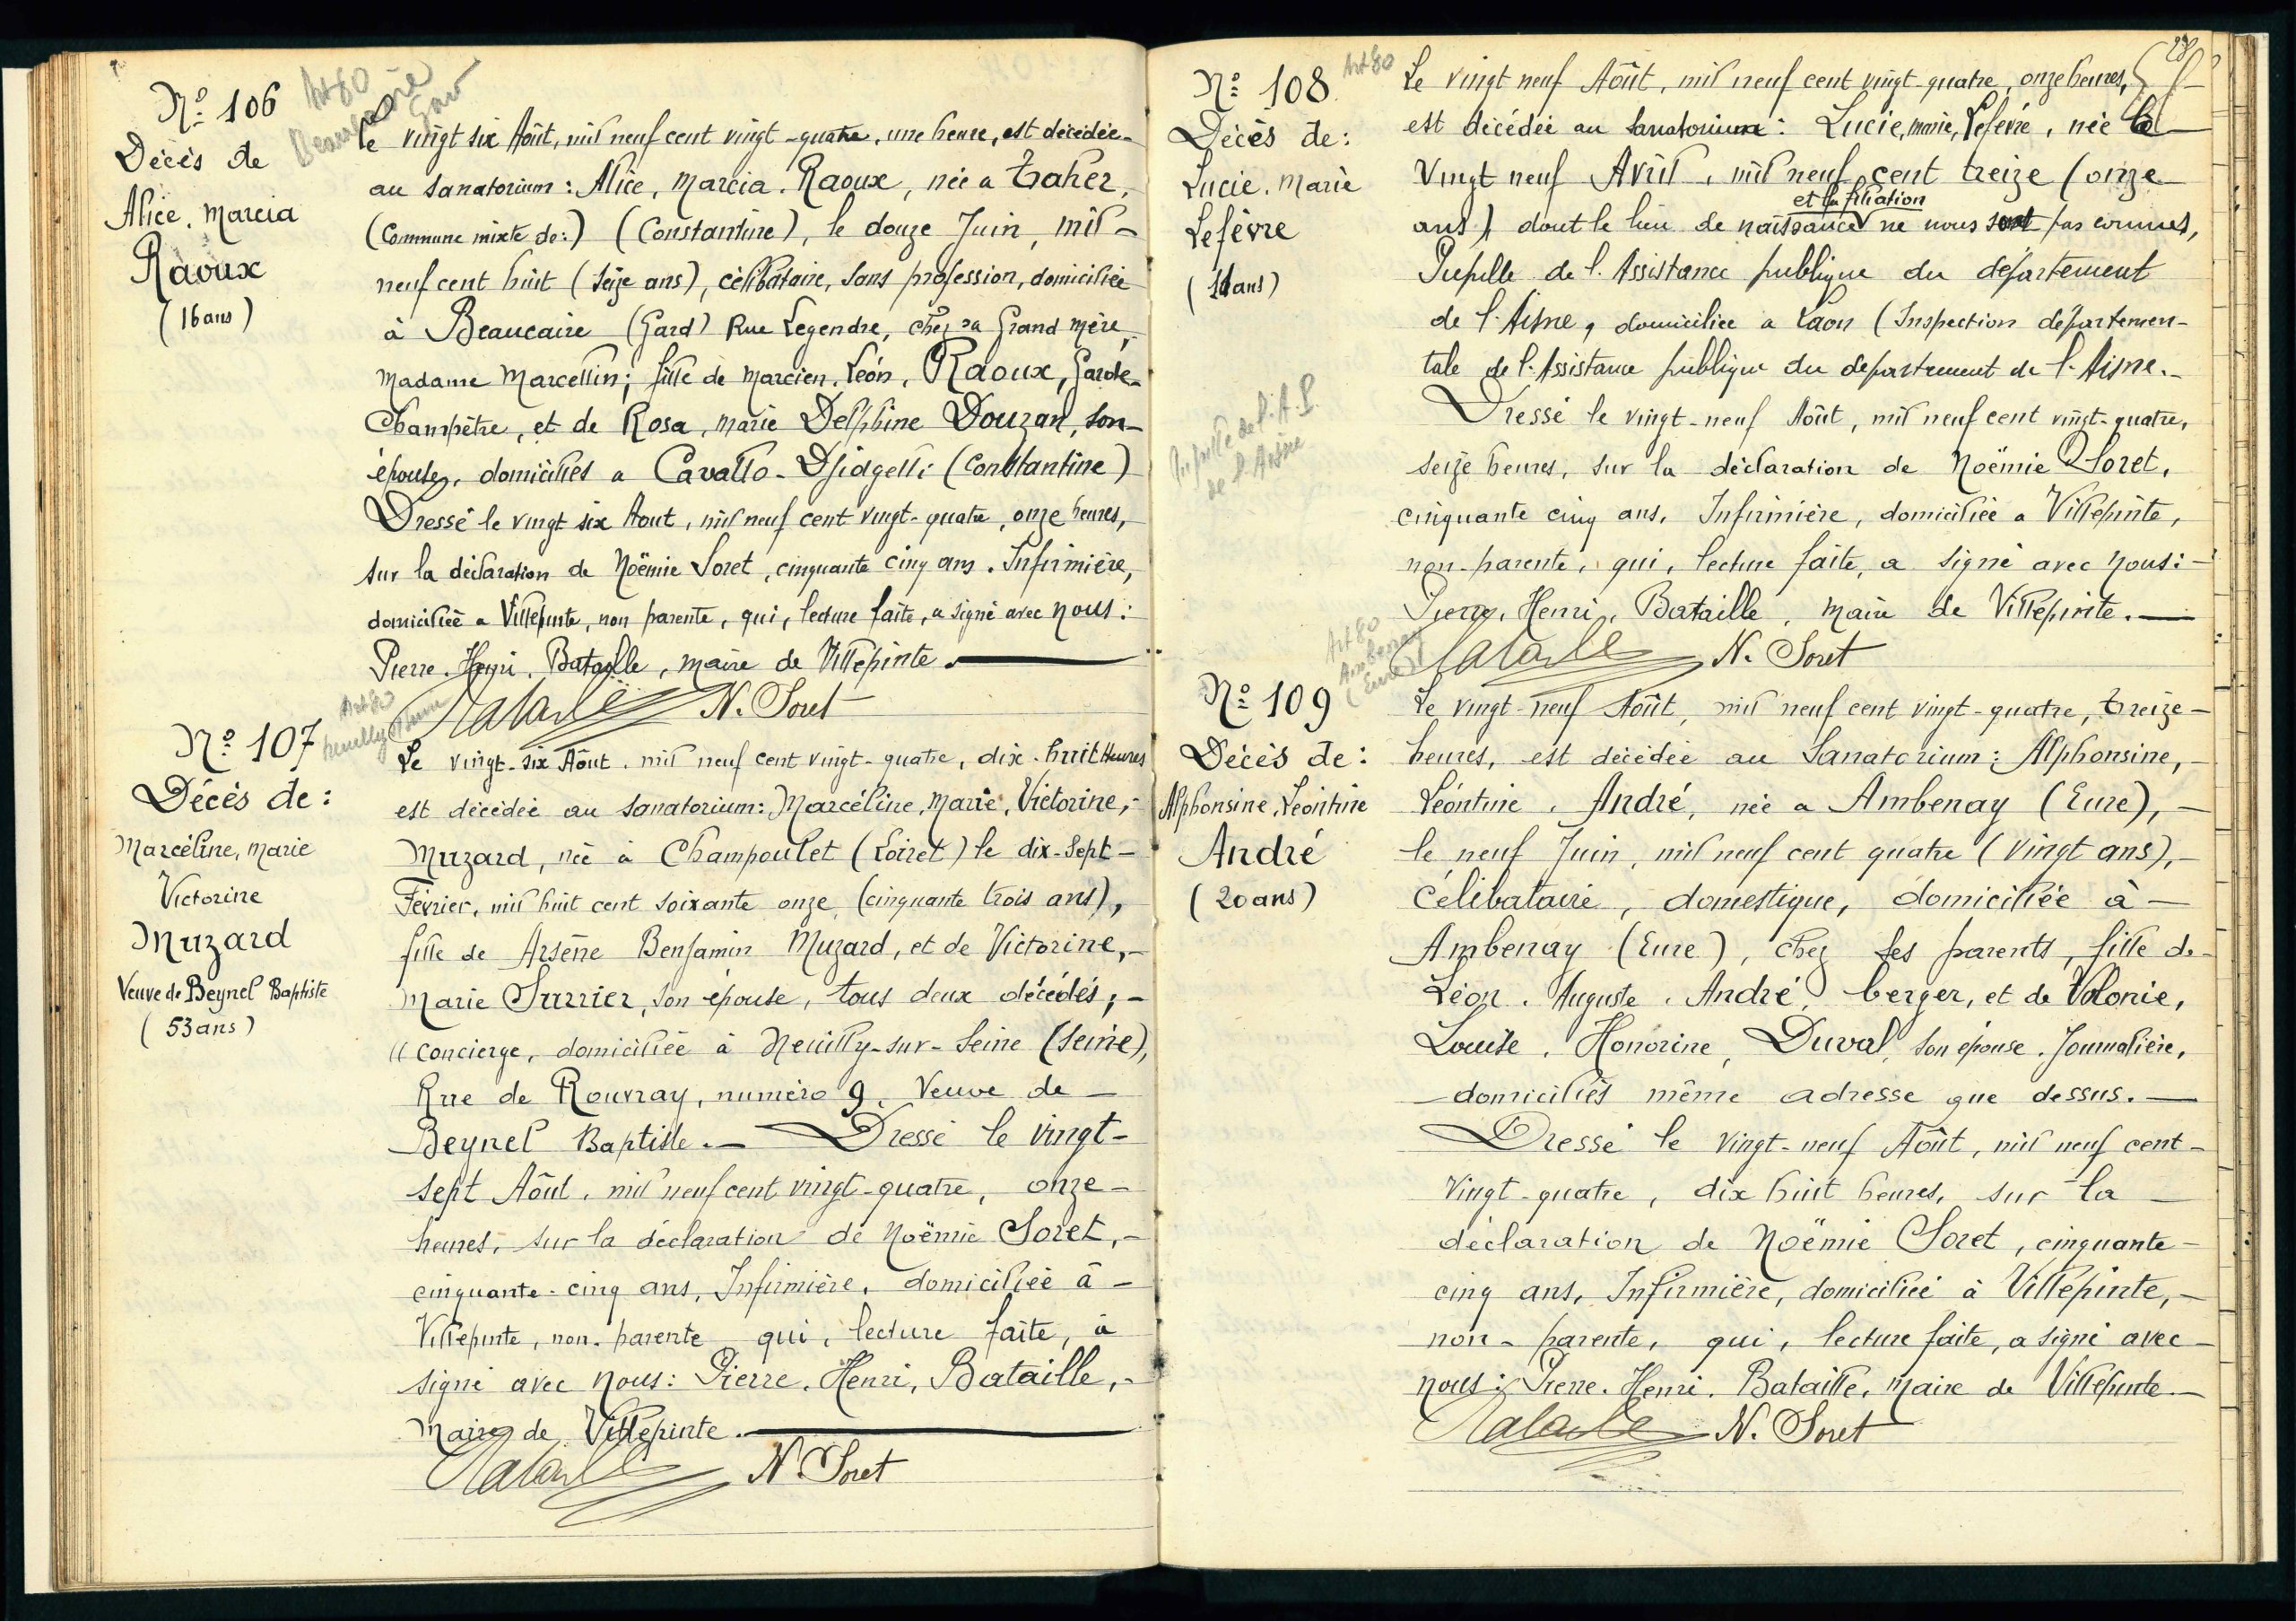 Nº 106
Art 80
Beaucaire
Gard
Décès de
Alice, Marcia
Raoux
(16 ans)
Le vingt six Août, mil neuf cent vingt-quatre, une heure, est décédée
au sanatorium : Alice, Marcia, Raoux, née a Taher,
(Commune mixte de :) (Constantine), le douze Juin, mil
neuf cent huit (seize ans), célibataire, sans profession, domiciliée
à Beaucaire (Gard) Rue Legendre, chez sa Grand mère,
Madame Marcellin; fille de Marcien, Léon, Raoux, Garde-
Champêtre, et de Rosa, Marie Delphine Douzan, son
épouse, domiciliés a Cavallo-Djidgelli (Constantine)
Dressé le vingt six Aout, mil neuf cent vingt-quatre, onze heures,
sur la déclaration de Noëmie Soret, cinquante cinq ans, Infirmière,
domiciliée a Villepinte, non parente, qui, lecture faite, a signé avec nous :
Pierre, Henri, Bataille, maire de Villepinte.
Bataille N. Soret
Nº 107
Art 80
Neuilly s/Seine
Décès de :
Marcéline, Marie
Victorine
Muzard
Veuve de Beynel Baptiste
(53 ans)
Le vingt-six Août, mil neuf cent vingt-quatre, dix-huit Heures
est décédée au sanatorium : Marcéline, Marie, Victorine,
Muzard, née à Champoulet (Loiret) le dix-sept
Février, mil huit cent soixante onze, (cinquante trois ans),
fille de Arsène Benjamin Muzard, et de Victorine,
Marie Surrier, son épouse, tous deux décédés;
concierge, domiciliée à Neuilly-sur-Seine (Seine),
Rue de Rouvray, numéro 9, Veuve de
Beynel Baptiste. Dressé le vingt-
sept Août, mil neuf cent vingt-quatre, onze
heures, sur la déclaration de Noëmie Soret,
cinquante-cinq ans, Infirmière, domiciliée à
Villepinte, non-parente qui, lecture faite, a
signé avec nous : Pierre, Henri, Bataille,
Maire de Villepinte.
Bataille N. Soret
Nº 108
Art 80
Décès de :
Lucie, Marie
Lefèvre
(11 ans)
Pupille de l'A.P.
de l'Aisne
Le vingt neuf Août, mil neuf cent vingt-quatre, onze heures,
est décédée au Sanatorium : Lucie, Marie, Lefèvre, née le
Vingt neuf Avril, mil neuf cent treize (onze
et la filiation
ans) dont le lieu de naissance ne nous sont pas connus,
Pupille de l'Assistance publique du département
de l'Aisne, domiciliée a Laon (Inspection départemen-
tale de l'Assistance publique du departement de l'Aisne.
Dressé le vingt-neuf Août, mil neuf cent vingt-quatre,
seize heures, sur la déclaration de Noëmie Soret,
cinquante cinq ans, Infirmière, domiciliée a Villepinte,
non-parente, qui, lecture faite, a signé avec nous :
Pierre, Henri, Bataille, Maire de Villepinte.
Bataille N. Soret
Nº 109
Art 80
Ambenay
(Eure)
Décès de :
Alphonsine, Léontine
André
(20 ans)
Le vingt-neuf Août, mil neuf cent vingt-quatre, treize
heures, est décédée au Sanatorium : Alphonsine,
Léontine, André, née a Ambenay (Eure),
le neuf Juin, mil neuf cent quatre (vingt ans),
Célibataire, domestique, domiciliée à
Ambenay (Eure), chez ses parents, fille de
Léon, Auguste, André, berger, et de Volonie,
Louise, Honorine, Duval, son épouse, Journalière,
domiciliés même adresse que dessus.
Dressé le Vingt-neuf Août, mil neuf cent
Vingt-quatre, dix huit heures, sur la
déclaration de Noëmie Soret, cinquante
cinq ans, Infirmière, domiciliée à Villepinte,
non-parente, qui, lecture faite, a signé avec
nous : Pierre, Henri, Bataille, Maire de Villepinte
Bataille N. Soret